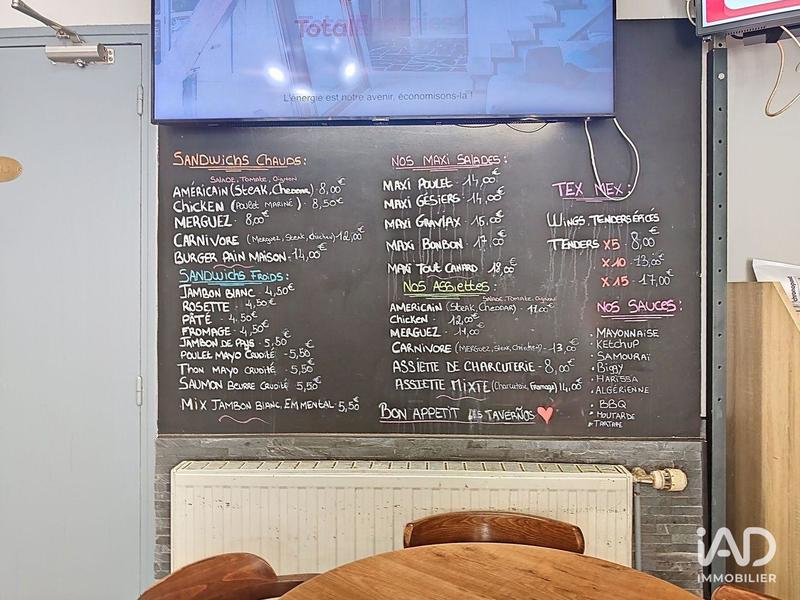 Total
L'énergie est notre avenir, économisons-la !
SANDWICHS CHAUDS:
SALADE, TOMATE, OIGNON
AMÉRICAIN (STEAK, CHEDDAR) - 8,00€
CHICKEN (POULET MARINÉ) - 8,50€
MERGUEZ - 8,00€
CARNIVORE (MERGUEZ, STEAK, CHICKEN) 12,00€
BURGER PAIN MAISON - 14,00€
SANDWICHS FROIDS:
JAMBON BLANC - 4,50€
ROSETTE - 4,50€
PÂTÉ - 4,50€
FROMAGE - 4,50€
JAMBON DE PAYS - 5,50€
POULET MAYO CRUDITÉ - 5,50€
THON MAYO CRUDITÉ - 5,50€
SAUMON BEURRE CRUDITÉ 5,50€
MIX JAMBON BLANC, EMMENTAL - 5,50€
NOS MAXI SALADES:
MAXI POULET - 14,00€
MAXI GÉSIERS - 14,00€
MAXI GRAVLAX - 15,00€
MAXI BONBON - 17,00€
MAXI TOUT CANARD - 18,00€
NOS ASSIETTES:
SALADE, TOMATE, OIGNON
AMERICAIN (STEAK, CHEDDAR) - 11,00€
CHICKEN - 12,00€
MERGUEZ - 11,00€
CARNIVORE (MERGUEZ, STEAK, CHICKEN) - 13,00€
ASSIETTE DE CHARCUTERIE - 8,00€
ASSIETTE MIXTE (Charcuterie, Fromage) 14,00€
BON APPETIT LES TAVERÑOS
TEX MEX:
WINGS, TENDERS ÉPICÉS
TENDERS X5 - 8,00€
X10 - 13,00€
X15 - 17,00€
NOS SAUCES:
• MAYONNAISE
• KETCHUP
• SAMOURAÏ
• BIGGY
• HARISSA
• ALGÉRIENNE
• BBQ
• MOUTARDE
• TARTARE
iAD
IMMOBILIER